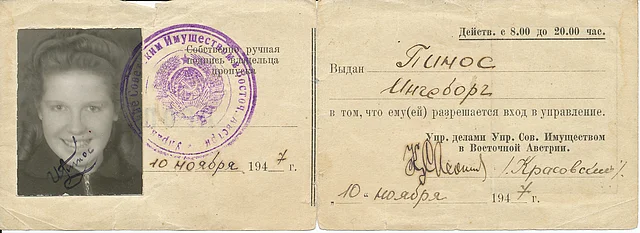 Собственно ручная
подпись владельца
пропуска
10 ноября 1947 г.
Действ. с 8.00 до 20.00 час.
Выдан Пинос
Ингоборг
в том, что ему(ей) разрешается вход в управление.
Упр. делами Упр. Сов. Имуществом
в Восточной Австрии.
/Красовский/
10 ноября 1947 г.